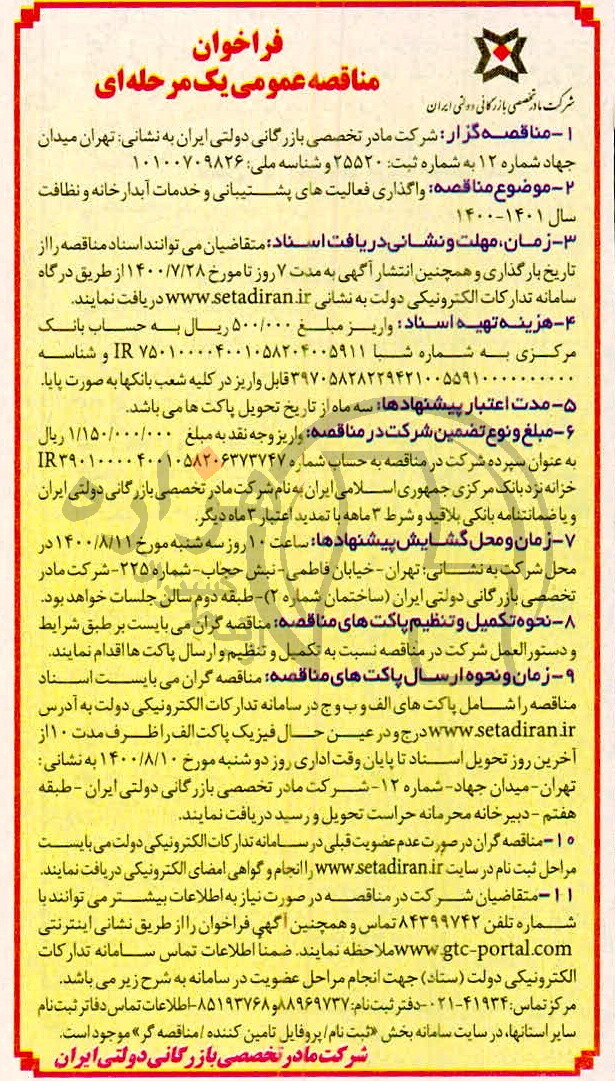 فراخوان
مناقصه عمومی یک مرحله‌ای
شرکت مادر تخصصی بازرگانی دولتی ایران
۱- مناقصه گزار: شرکت مادر تخصصی بازرگانی دولتی ایران به نشانی: تهران میدان
جهاد شماره ۱۲ به شماره ثبت: ۲۵۵۲۰ و شناسه ملی: ۱۰۱۰۰۷۰۹۸۲۶
۲- موضوع مناقصه: واگذاری فعالیت های پشتیبانی و خدمات آبدارخانه و نظافت
سال ۱۴۰۱-۱۴۰۰
۳- زمان، مهلت و نشانی دریافت اسناد: متقاضیان می توانند اسناد مناقصه را از
تاریخ بارگذاری و همچنین انتشار آگهی به مدت ۷ روز تا مورخ ۱۴۰۰/۷/۲۸ از طریق درگاه
سامانه تدارکات الکترونیکی دولت به نشانی www.setadiran.ir دریافت نمایند.
۴- هزینه تهیه اسناد: واریز مبلغ ۵۰۰/۰۰۰ ریال به حساب بانک
مرکزی به شماره شبا IR ۷۵۰۱۰۰۰۰۴۰۰۱۰۵۸۲۰۴۰۰۵۹۱۱ و شناسه
۳۹۷۰۵۸۲۸۲۲۹۴۲۱۰۰۵۵۹۱۰۰۰۰۰۰۰۰۰۰ قابل واریز در کلیه شعب بانکها به صورت پایا.
۵- مدت اعتبار پیشنهادها: سه ماه از تاریخ تحویل پاکت ها می باشد.
۶- مبلغ و نوع تضمین شرکت در مناقصه: واریز وجه نقد به مبلغ ۱/۱۵۰/۰۰۰/۰۰۰ ریال
به عنوان سپرده شرکت در مناقصه به حساب شماره IR۳۹۰۱۰۰۰۰۴۰۰۱۰۵۸۲۰۶۳۷۳۷۴۷
خزانه نزد بانک مرکزی جمهوری اسلامی ایران به نام شرکت مادر تخصصی بازرگانی دولتی ایران
و یا ضمانتنامه بانکی بلاقید و شرط ۳ ماهه با تمدید اعتبار ۳ ماه دیگر.
۷- زمان و محل گشایش پیشنهادها: ساعت ۱۰ روز سه شنبه مورخ ۱۴۰۰/۸/۱۱ در
محل شرکت به نشانی: تهران- خیابان فاطمی- نبش حجاب- شماره ۲۲۵- شرکت مادر
تخصصی بازرگانی دولتی ایران (ساختمان شماره ۲)- طبقه دوم سالن جلسات خواهد بود.
۸- نحوه تکمیل و تنظیم پاکت های مناقصه: مناقصه گران می بایست بر طبق شرایط
و دستورالعمل شرکت در مناقصه نسبت به تکمیل و تنظیم و ارسال پاکت ها اقدام نمایند.
۹- زمان و نحوه ارسال پاکت های مناقصه: مناقصه گران می بایست اسناد
مناقصه را شامل پاکت های الف و ب و ج در سامانه تدارکات الکترونیکی دولت به آدرس
www.setadiran.ir درج و در عین حال فیزیک پاکت الف را ظرف مدت ۱۰ از
آخرین روز تحویل اسناد تا پایان وقت اداری روز دو شنبه مورخ ۱۴۰۰/۸/۱۰ به نشانی:
تهران- میدان جهاد- شماره ۱۲- شرکت مادر تخصصی بازرگانی دولتی ایران - طبقه
هفتم - دبیرخانه محرمانه حراست تحویل و رسید دریافت نمایند.
۱۰- مناقصه گران در صورت عدم عضویت قبلی در سامانه تدارکات الکترونیکی دولت می بایست
مراحل ثبت نام در سایت www.setadiran.ir را انجام و گواهی امضای الکترونیکی دریافت نمایند.
۱۱- متقاضیان شرکت در مناقصه در صورت نیاز به اطلاعات بیشتر می توانند با
شماره تلفن ۸۴۳۹۹۷۴۲ تماس و همچنین آگهی فراخوان را از طریق نشانی اینترنتی
www.gtc-portal.com ملاحظه نمایند. ضمناً اطلاعات تماس سامانه تدارکات
الکترونیکی دولت (ستاد) جهت انجام مراحل عضویت در سامانه به شرح زیر می باشد.
مرکز تماس: ۴۱۹۳۴-۰۲۱- دفتر ثبت نام: ۸۸۹۶۹۷۳۷ و ۸۵۱۹۳۷۶۸- اطلاعات تماس دفاتر ثبت نام
سایر استانها، در سایت سامانه بخش «ثبت نام/ پروفایل تامین کننده /مناقصه گر» موجود است.
شرکت مادر تخصصی بازرگانی دولتی ایران